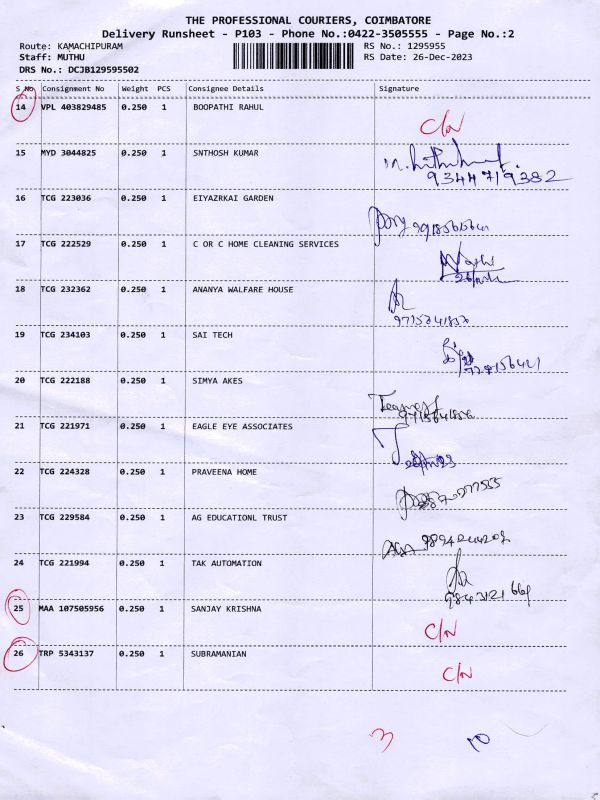 THE PROFESSIONAL COURIERS, COIMBATORE
Delivery Runsheet - P103 - Phone No.:0422-3505555 - Page No.:2
Route: KAMACHIPURAM RS No.: 1295955
Staff: MUTHU RS Date: 26-Dec-2023
DRS No.: DCJB129595502
S No Consignment No Weight PCS Consignee Details Signature
14 VPL 403829485 0.250 1 BOOPATHI RAHUL C/N
15 MYD 3044825 0.250 1 SNTHOSH KUMAR 9344719382
16 TCG 223036 0.250 1 EIYAZRKAI GARDEN
17 TCG 222529 0.250 1 C OR C HOME CLEANING SERVICES
18 TCG 232362 0.250 1 ANANYA WALFARE HOUSE
19 TCG 234103 0.250 1 SAI TECH
20 TCG 222188 0.250 1 SIMYA AKES
21 TCG 221971 0.250 1 EAGLE EYE ASSOCIATES
22 TCG 224328 0.250 1 PRAVEENA HOME
23 TCG 229584 0.250 1 AG EDUCATIONL TRUST
24 TCG 221994 0.250 1 TAK AUTOMATION
25 MAA 107505956 0.250 1 SANJAY KRISHNA C/N
26 TRP 5343137 0.250 1 SUBRAMANIAN C/N
3 10